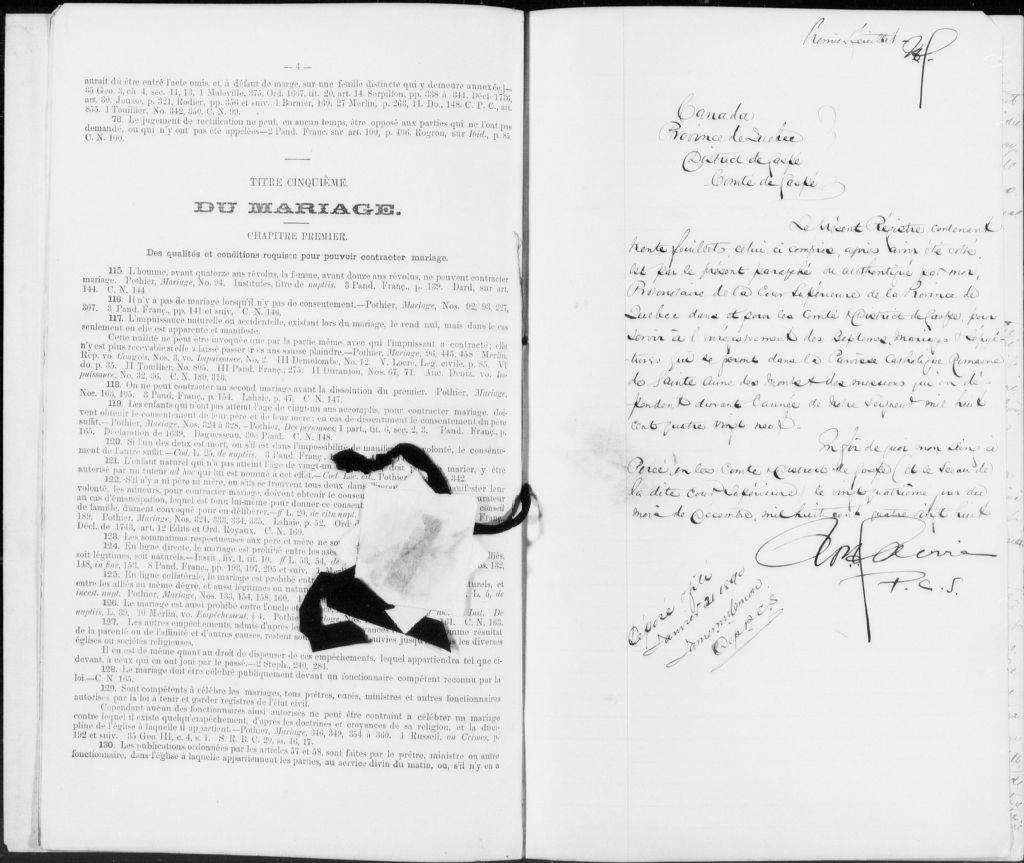 — 4 —
aurait dû être entré l'acte omis, et, à défaut de marge, sur une feuille distincte qui y demeure annexée.]—
35 Geo. 3, ch. 4, sec. 11, 13, 1 Maleville, 375, Ord. 1667, tit. 20, art. 14 Serpillon, pp. 338 à 341. Décl 1736,
art. 30. Jousse, p. 321, Rodier, pp. 356 et suiv. 1 Bornier, 169. 27 Merlin, p. 263, 11. Do., 148. C. P. C., art.
855. 1 Toullier, No. 342, 350. C. N. 99.
78. Le jugement de rectification ne peut, en aucun temps, être opposé aux parties qui ne l'ont pas
demandé, ou qui n'y ont pas été appelées—2 Pand. Franc. sur art. 100, p. 406. Rogron, sur Ibid., p. 85.
C. N. 100.
TITRE CINQUIÈME.
DU MARIAGE.
CHAPITRE PREMIER.
Des qualités et conditions requises pour pouvoir contracter mariage.
115. L'homme, avant quatorze ans révolus, la femme, avant douze ans révolus, ne peuvent contracter
mariage. Pothier, Mariage, No. 94. Institutes, titre de nuptiis. 3 Pand. Franç., p. 139. Dard, sur art.
144. C. N. 144.
116. Il n'y a pas de mariage lorsqu'il n'y pas de consentement.—Pothier, Mariage, Nos. 92, 93, 227,
307. 3 Pand. Franç., pp. 141 et suiv. C. N. 146.
117. L'impuissance naturelle ou accidentelle, existant lors du mariage, le rend nul, mais dans le cas
seulement où elle est apparente et manifeste.
Cette nullité ne peut être invoquée que par la partie même avec qui l'impuissant a contracté; elle
n'y est plus recevable si elle a laissé passer trois ans sans se plaindre.—Pothier, Mariage, 96, 445, 458 Merlin,
Rép. vo. Congrès, Nos. 3, vo. Impuissance, No. 2. III Demolombe, No. 12 V. Locré, Leg. civile, p. 85. VI
do. p. 35. II Toullier, No. 805. III Pand. Franç., 275. II Duranton, Nos. 67, 71. Anc. Deniz. vo. Im-
puissance, No. 32, 36. C. N. 180, 313.
118. On ne peut contracter un second mariage avant la dissolution du premier. Pothier, Mariage,
Nos. 103, 105. 3 Pand. Franç., p 154. Lahaie, p. 47. C N. 147.
119. Les enfants qui n'ont pas atteint l'âge de vingt-un ans accomplis, pour contracter mariage, doi-
vent obtenir le consentement de leur père et de leur mère; en cas de dissentiment le consentement du père
suffit.—Pothier, Mariage, Nos. 324 à 328.—Pothier, Des personnes, 1 part, tit. 6, sec. 2, 3. Pand. Franç., p.
165. Déclaration de 1639. Daguesseau, 30e Paud. C. N. 148.
120. Si l'un des deux est mort, ou s'il est dans l'impossibilité de manif volonté, le consente-
ment de l'autre suffit.—Cod. L. 25, de nuptiis. 3 Pand. Franç
121. L'enfant naturel qui n'a pas atteint l'âge de vingt-un doit marier, y être
autorisé par un tuteur ad hoc qui lui est nommé à cet effet.—Cod. Loc. cit., Pothier 342.
122. S'il n'y a ni père ni mère, ou s'ils se trouvent tous deux dans manifester leur
volonté, les mineurs, pour contracter mariage, doivent obtenir le consen urateur
au cas d'émancipation, lequel est tenu lui-même pour donner ce consent conseil
de famille, dûment convoqué pour en délibérer.—ff L. 20, de ritu nupt. Franç
189. Pothier, Mariage, Nos. 321, 333, 334, 335. Lahaie, p. 52. Ord
Décl. de 1743, art. 12 Edits et Ord. Royaux. C. N. 160.
123. Les sommations respectueuses aux père et mère ne so
124. En ligne directe, le mariage est prohibé entre les asc lliés,
soit légitimes, soit naturels.—Instit., liv. 1, tit. 10. ff L. 53, 54, de ss. 132,
148, in fine, 153. 8 Pand. Franç., pp. 193, 197, 205 et suiv.
125. En ligne collatérale, le mariage est prohibé entr turels, et
entre les alliés au même dégré, et aussi légitimes ou natu L. 5, de
incest. nupt. Pothier, Mariage, Nos. 133, 154, 158, 160.
126. Le mariage est aussi prohibé entre l'oncle e Inst. De
nuptiis, L. 39. 10 Merlin, vo. Empêchement, § 4. Pothie 161. C. N. 163.
127. Les autres empêchements, admis d'après l yances me résultat
de la parenté ou de l'affinité et d'autres causes, restent so suivies jusqu les diverses
églises ou sociétés religieuses.
Il en est de même quant au droit de dispenser de ces empêchements, lequel appartiendra tel que ci-
devant, à ceux qui en ont joui par le passé.—2 Steph., 240, 284.
128. Le mariage doit être célébré publiquement devant un fonctionnaire compétent reconnu par la
loi.—C. N 165.
129. Sont compétents à célèbre les mariages, tous prêtres, curés, ministres et autres fonctionnaires
autorisés par la loi à tenir et garder registres de l'état civil.
Cependant aucun des fonctionnaires ainsi autorisés ne peut être contraint à célébrer un mariage
contre lequel il existe quelqu'empêchement, d'après les doctrines et croyances de sa religion, et la disci-
pline de l'église à laquelle il appartient.—Pothier, Mariage, 346, 349, 354 à 360. 1 Russell, on Crimes, p.
192 et suiv. 35 Geo. III, c. 4, s. 1. S. R. B. C. 20, ss. 16, 17.
130. Les publications ordonnées par les articles 57 et 58, sont faites par le prêtre, ministre ou autre
fonctionnaire, dans l'église à laquelle appartiennent les parties, au service divin du matin, ou, s'il n'y en a
Premier feuillet
Canada
Province de Quebec
District de Gaspé
Comté de Gaspé
Le Présent Régistre contenant
trente feuillets celui ci compris, après avoir été coté,
est par le présent paraphé ou authentiqué par moi,
Protonotaire de la Cour Supérieure de la Province de
Quebec dans et pour les Comté & District de Gaspé, pour
servir à l'enregistrement des Baptêmes, Mariages & Sépul-
tures qui se feront dans la Paroisse Catholique Romaine
de Sainte Anne des Monts & des missions qui en dé-
pendent durant l'année de Notre Seigneur mil huit
cent quatre vingt neuf.
En foi de quoi mon seing à
Percé, en les Comté & District de Gaspé, et le sceau de
la dite Cour Supérieure, le vingt quatrième jour du
mois de Decembre, mil huit cent quatre vingt huit
P. C. S.
Déposé ce
Janvier 21 1890
Dep P.C.S